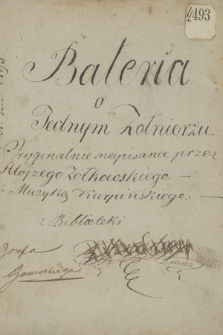 4493
Bateria
o
Jednym Żołnierzu.
Oryginalnie napisana przez
Alojzego Żółkowskiego —
Muzyka Karpińskiego. —
z Biblioteki
Józefa